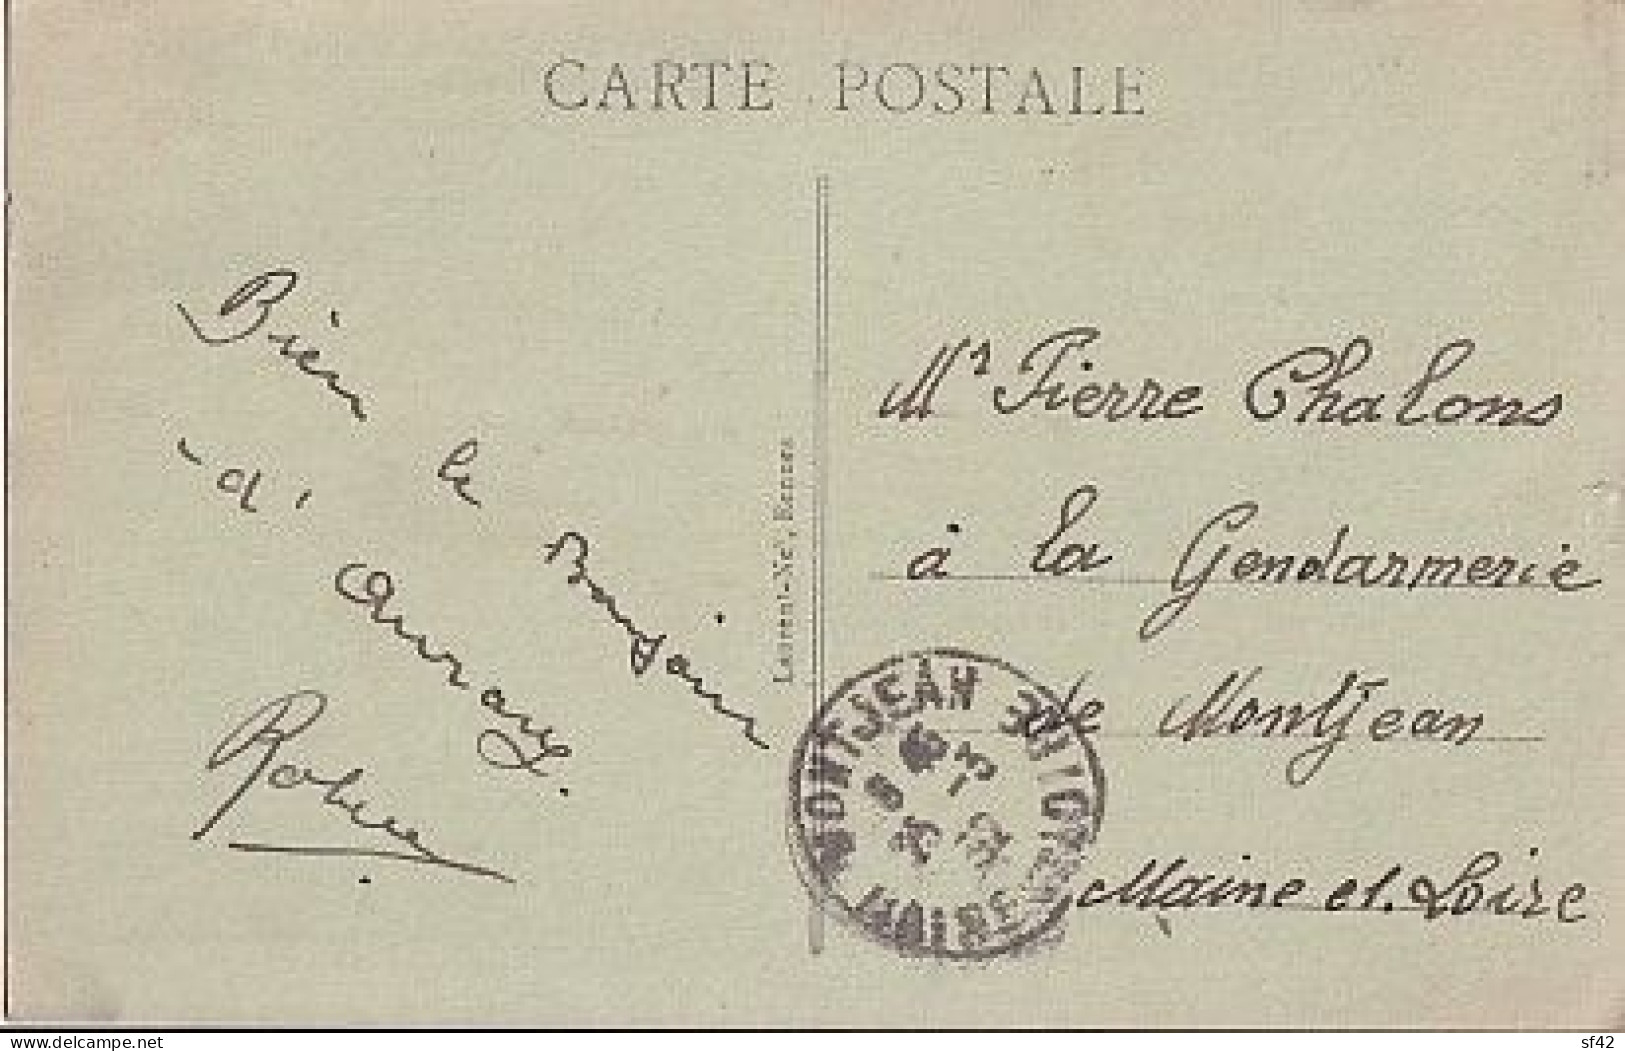 CARTE POSTALE
Bien le Bonjour
d'Auray.
Laurent-Nel, Rennes
Mr Pierre Chalons
à la Gendarmerie
de Montjean
Maine et. Loire
MONTJEAN
delcampe.net
sf42